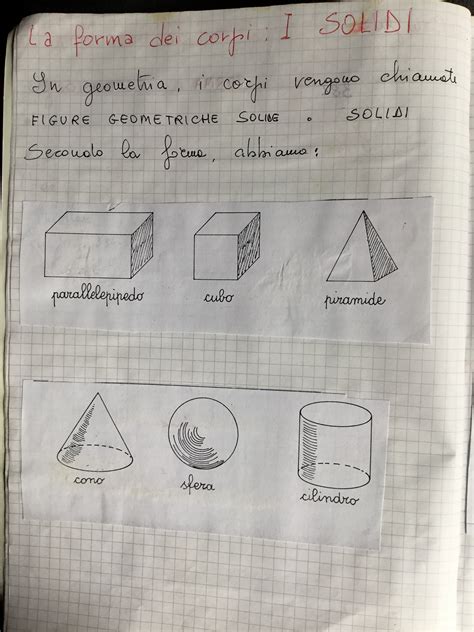 La forma dei corpi: I SOLIDI
In geometria, i corpi vengono chiamate
FIGURE GEOMETRICHE SOLIDE o SOLIDI
Secondo la forma, abbiamo:
parallelepipedo cubo piramide
cono sfera cilindro